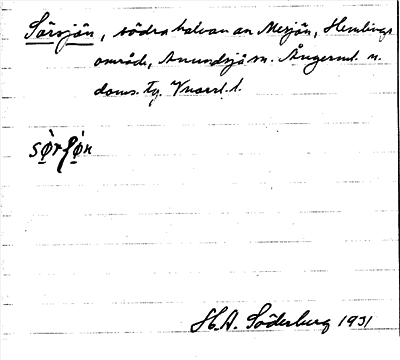 Sörsjön, södra halvan av Mesjön, Hemlings
område, Anundsjö sn. Ångerml. n.
doms. tg. Vnorrl. l.
sø̀rʃø̀n
H.A. Söderberg 1931